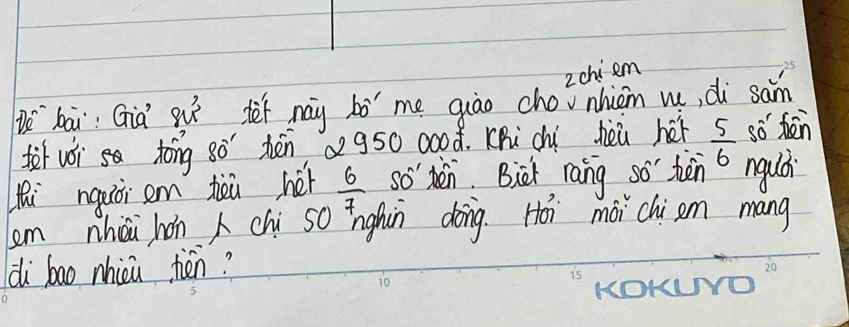 2 chị em
Đề bài: Giả sử tết này bố mẹ giao cho v nhiệm vụ, đi sắm
tết với tổng số tiền 2950 000đ. Khi chị tiêu hết 5/6 số tiền
thì người em tiêu hết 6/7 số tiền. Biết rằng số tiền người
em nhiều hơn chị 50 nghìn đồng. Hỏi mỗi chị em mang
đi bao nhiêu tiền?
0 5 10 15 20 25
KOKUYO